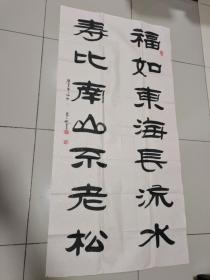 福如東海長流水
寿比南山不老松